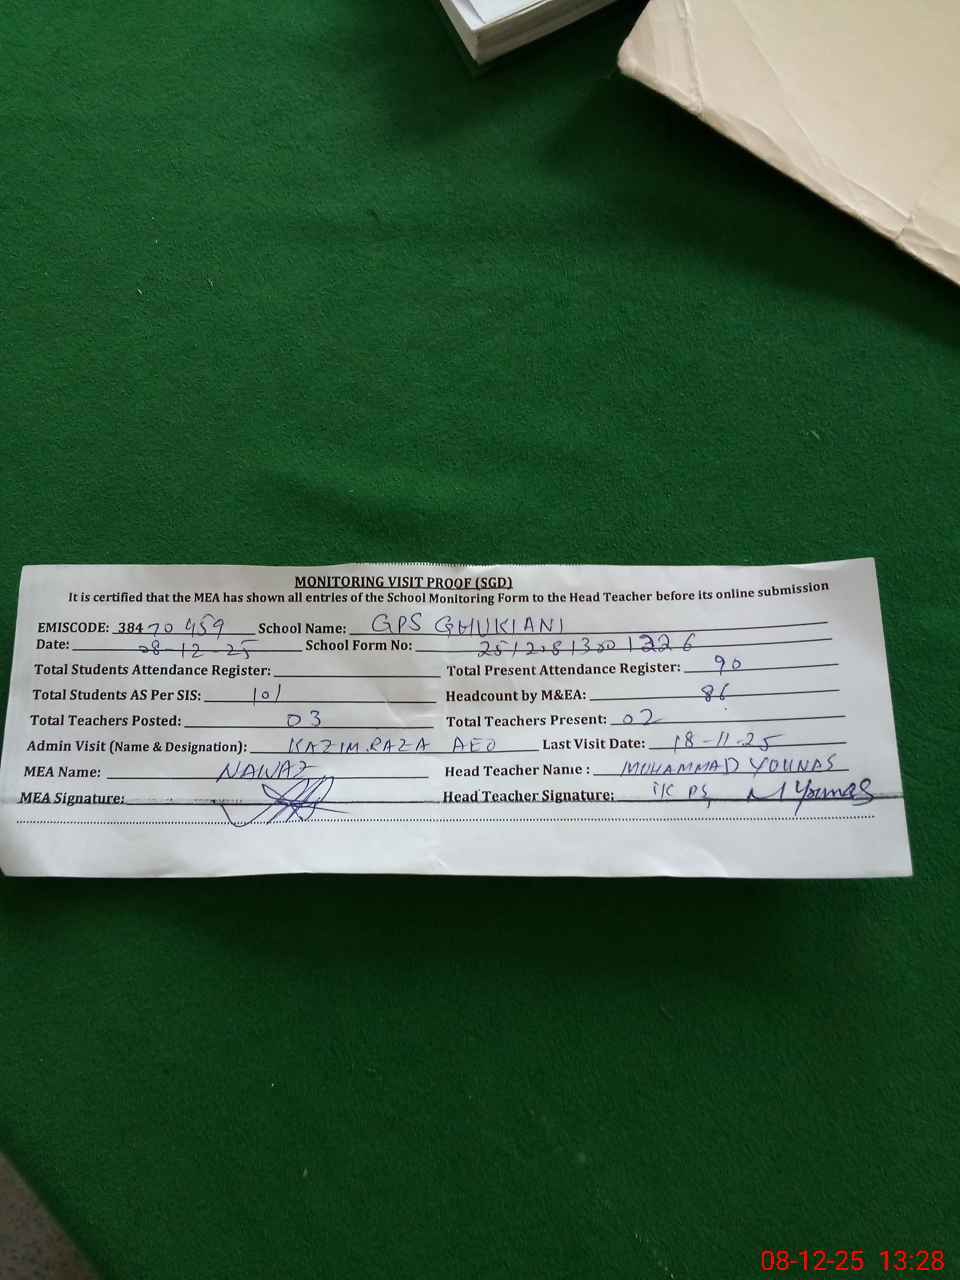 MONITORING VISIT PROOF (SGD)
It is certified that the MEA has shown all entries of the School Monitoring Form to the Head Teacher before its online submission
EMISCODE: 38470459 School Name: GPS GHUKIANI
Date: 08-12-25 School Form No:
Total Students Attendance Register: Total Present Attendance Register: 90
Total Students AS Per SIS: 101 Headcount by M&EA: 86
Total Teachers Posted: 03 Total Teachers Present: 02
Admin Visit (Name & Designation): KAZIM.RAZA AEO Last Visit Date: 18-11-25
MEA Name: NAWAZ Head Teacher Name : MUHAMMAD YOUNAS
MEA Signature: Head Teacher Signature: M Younas
08-12-25 13:28